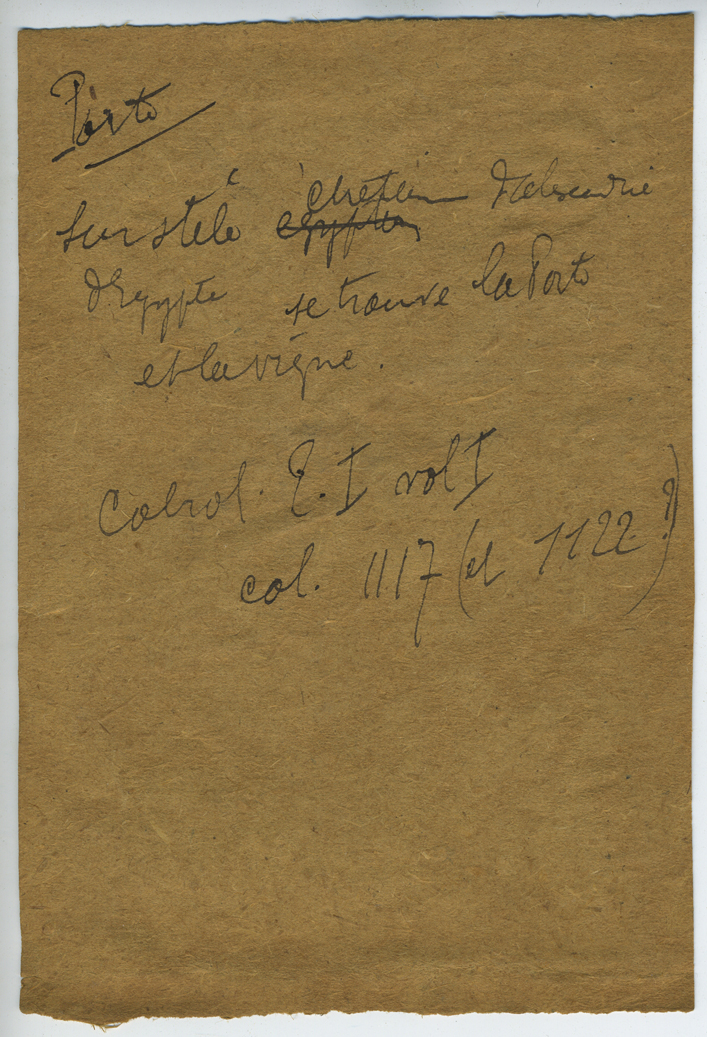 Porte
sur stèle egyptien chretien d'alexandrie
d'Egypte se trouve la Porte
et la vigne.
Cabrol. E. I vol I
col. 1117 (et 1122 ?)